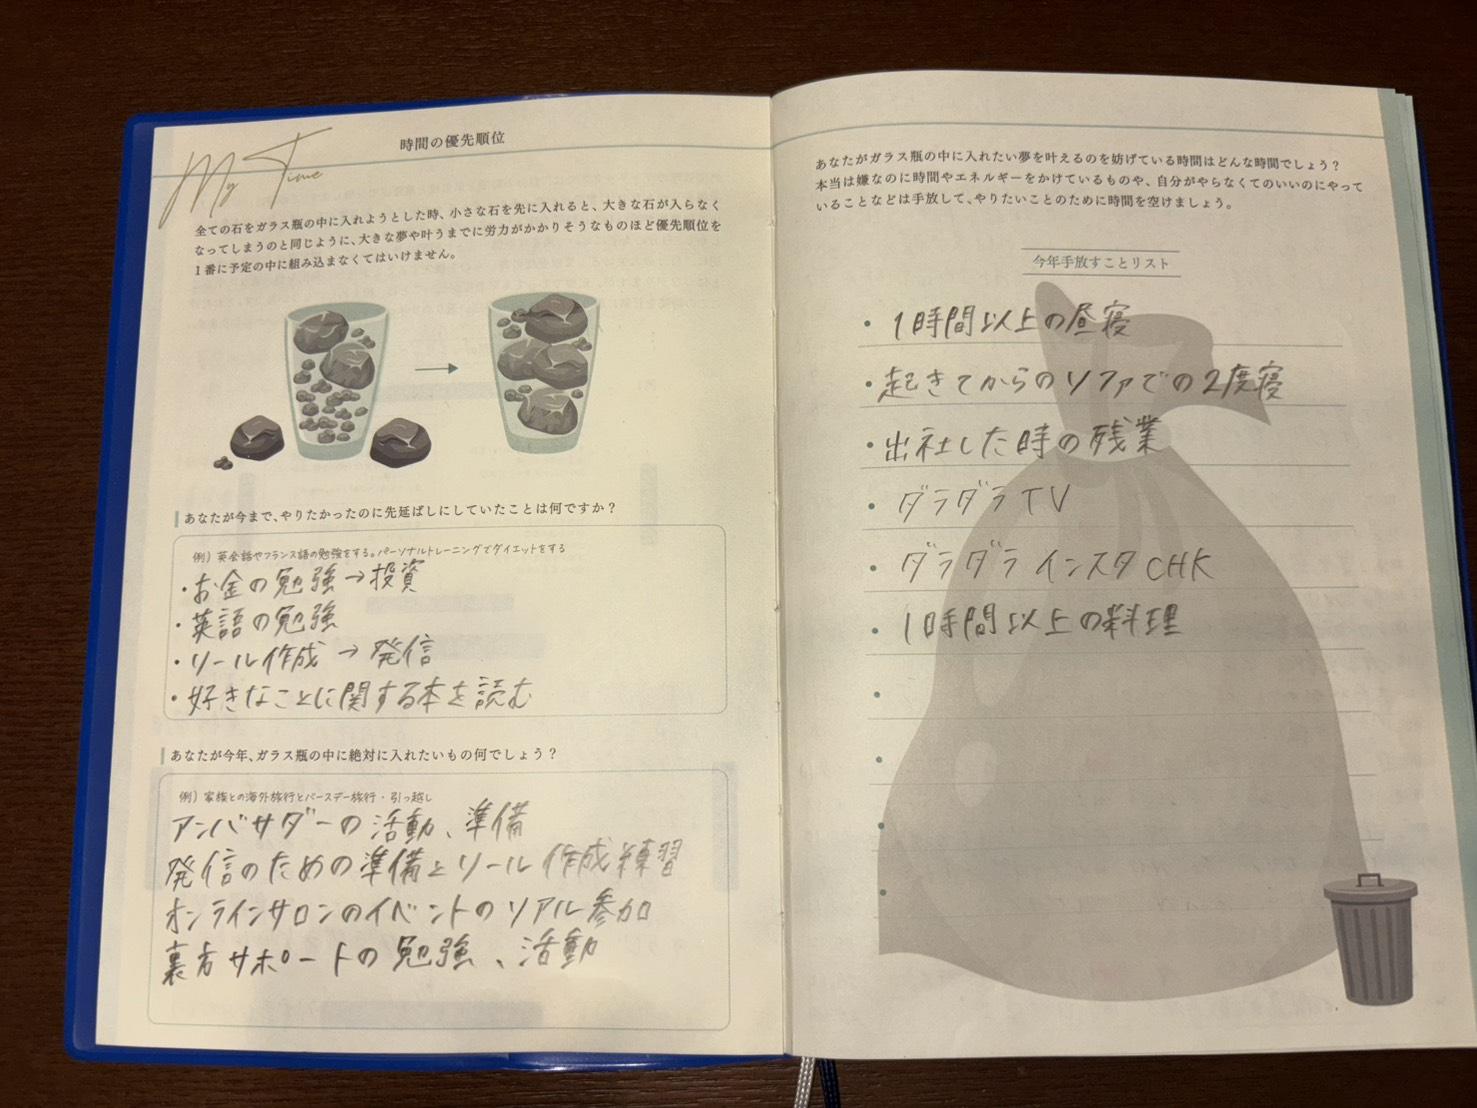 My Time
時間の優先順位
全ての石をガラス瓶の中に入れようとした時、小さな石を先に入れると、大きな石が入らなく
なってしまうのと同じように、大きな夢や叶うまでに労力がかかりそうなものほど優先順位を
1番に予定の中に組み込まなくてはいけません。
あなたが今まで、やりたかったのに先延ばしにしていたことは何ですか？
例）英会話やフランス語の勉強をする。パーソナルトレーニングでダイエットをする
・お金の勉強→投資
・英語の勉強
・リール作成→発信
・好きなことに関する本を読む
あなたが今年、ガラス瓶の中に絶対に入れたいもの何でしょう？
例）家族との海外旅行とバースデー旅行・引っ越し
アンバサダーの活動、準備
発信のための準備とリール作成練習
オンラインサロンのイベントのリアル参加
裏方サポートの勉強、活動
あなたがガラス瓶の中に入れたい夢を叶えるのを妨げている時間はどんな時間でしょう？
本当は嫌なのに時間やエネルギーをかけているものや、自分がやらなくてのいいのにやって
いることなどは手放して、やりたいことのために時間を空けましょう。
今年手放すことリスト
・1時間以上の昼寝
・起きてからのソファでの2度寝
・出社した時の残業
・ダラダラTV
・ダラダラインスタCHK
・1時間以上の料理